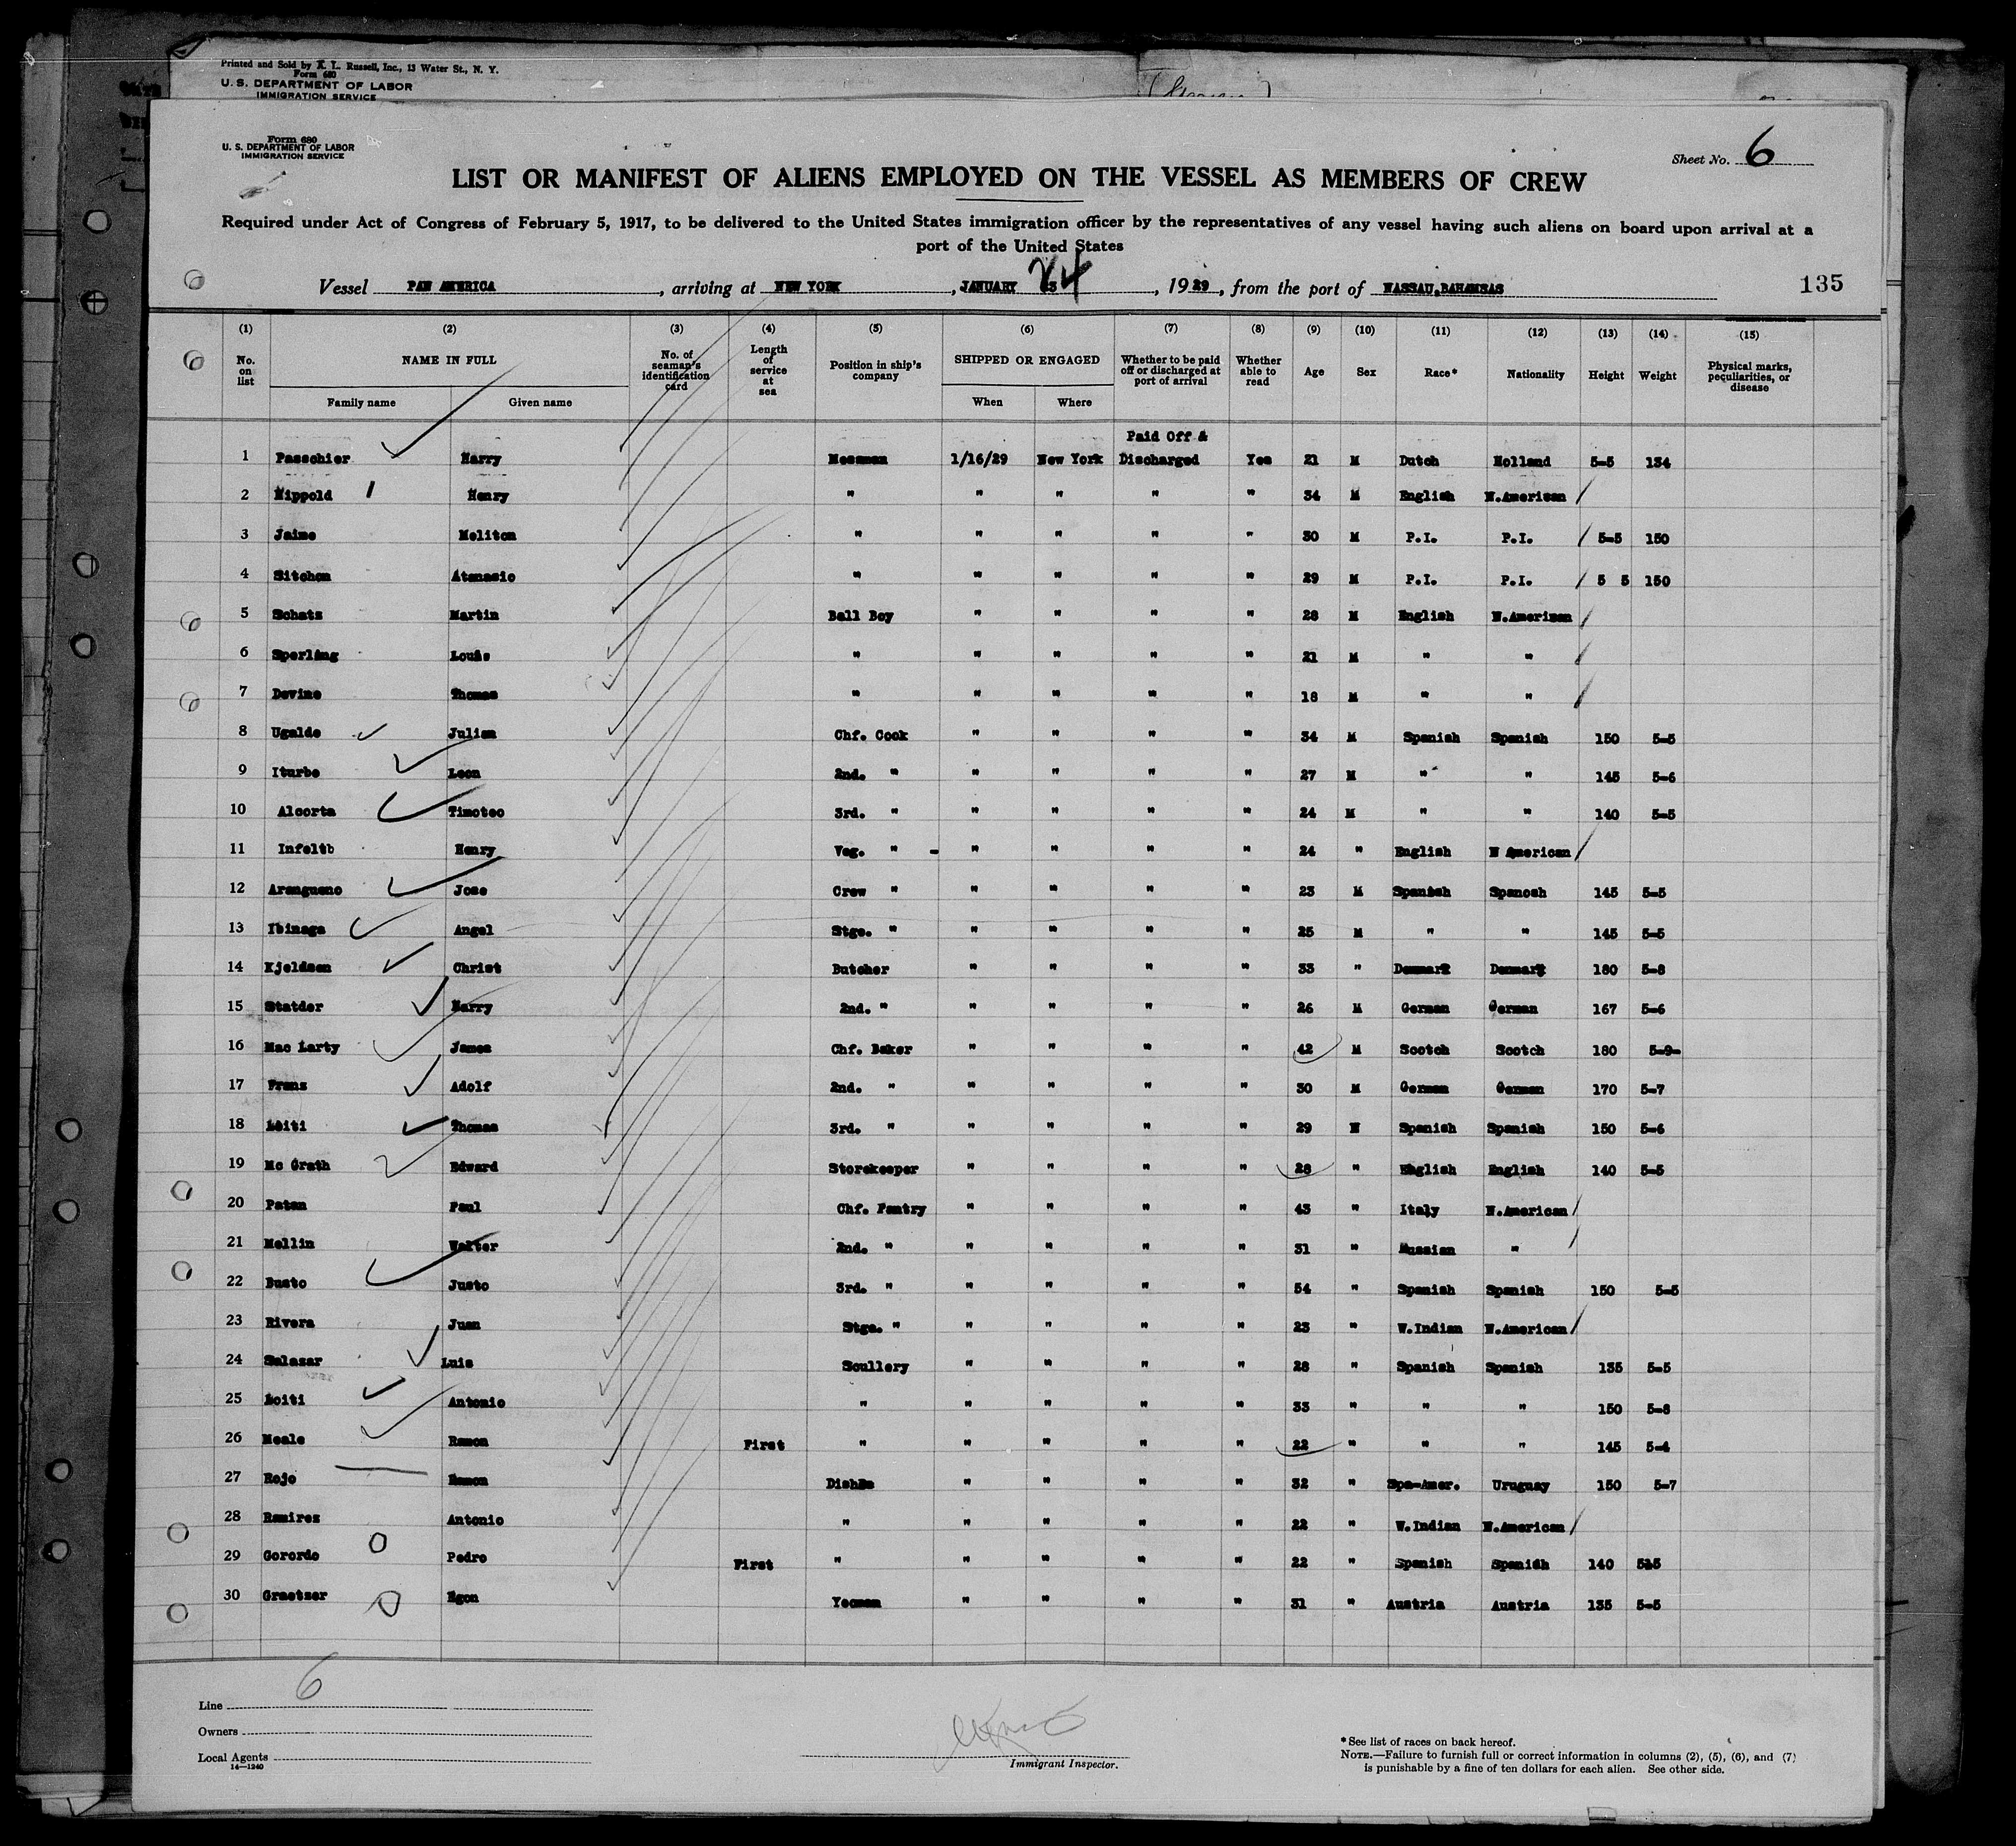 Printed and Sold by A. L. Russell, Inc., 13 Water St., N. Y.
Form 680
U. S. DEPARTMENT OF LABOR
IMMIGRATION SERVICE
Form 680
U. S. DEPARTMENT OF LABOR
IMMIGRATION SERVICE
Sheet No. 6
LIST OR MANIFEST OF ALIENS EMPLOYED ON THE VESSEL AS MEMBERS OF CREW
Required under Act of Congress of February 5, 1917, to be delivered to the United States immigration officer by the representatives of any vessel having such aliens on board upon arrival at a
port of the United States
Vessel PAN AMERICA, arriving at NEW YORK, JANUARY 24, 1929, from the port of NASSAU, BAHAMSAS 135
(1) (2) (3) (4) (5) (6) (7) (8) (9) (10) (11) (12) (13) (14) (15)
No. on list NAME IN FULL Family name Given name No. of seaman's identification card Length of service at sea Position in ship's company SHIPPED OR ENGAGED When Where Whether to be paid off or discharged at port of arrival Whether able to read Age Sex Race* Nationality Height Weight Physical marks, peculiarities, or disease
Paid Off &
1 Passchier Harry Messman 1/16/29 New York Discharged Yes 21 M Dutch Holland 5-5 134
2 Nippold Henry " " " " " 34 M English N.American
3 Jaime Meliton " " " " " 30 M P.I. P.I. 5-5 150
4 Sitchon Atanasio " " " " " 29 M P.I. P.I. 5 5 150
5 Schatz Martin Bell Boy " " " " 28 M English N.American
6 Sperling Louis " " " " " 21 M " "
7 Devine Thomas " " " " " 18 M " "
8 Ugalde Julian Chf. Cook " " " " 34 M Spanish Spanish 150 5-5
9 Iturbe Leon 2nd. " " " " " 27 M " " 145 5-6
10 Alcorta Timoteo 3rd. " " " " " 24 M " " 140 5-5
11 Infeltb Henry Veg. " - " " " " 24 " English N American
12 Arangueno Jose Crew " " " " " 23 M Spanish Spanosh 145 5-5
13 Ibinaga Angel Stge. " " " " " 25 M " " 145 5-5
14 Kjeldsen Christ Butcher " " " " 33 " Denmark Denmark 180 5-8
15 Statder Harry 2nd. " " " " " 26 M German German 167 5-6
16 Mac Larty James Chf. Baker " " " " 42 M Scotch Scotch 180 5-9-
17 Franz Adolf 2nd. " " " " " 30 M German German 170 5-7
18 Loiti Thomas 3rd. " " " " " 29 M Spanish Spanish 150 5-6
19 Mc Grath Edward Storekeeper " " " " 28 " English English 140 5-5
20 Patan Paul Chf. Pantry " " " " 43 " Italy N.American
21 Mellin Walter 2nd. " " " " " 31 " Russian "
22 Busto Justo 3rd. " " " " " 54 " Spanish Spanish 150 5-5
23 Rivera Juan Stge. " " " " " 23 " W.Indian N.American
24 Salazar Luis Scullery " " " " 28 " Spanish Spanish 135 5-5
25 Loiti Antonio " " " " " 33 " " " 150 5-8
26 Meale Ramon First " " " " " 22 " " " 145 5-4
27 Rojo Ramon " " " " 32 " Spa-Amer. Uruguay 150 5-7
28 Ramirez Antonio " " " " " 22 " W.Indian N.American
29 Gorordo Pedro First " " " " " 22 " Spanish Spanish 140 5-5
30 Graetzer Egon Yeoman " " " " 31 " Austria Austria 135 5-5
6
Line
Owners
Local Agents
14—1240
Immigrant Inspector.
*See list of races on back hereof.
NOTE.—Failure to furnish full or correct information in columns (2), (5), (6), and (7)
is punishable by a fine of ten dollars for each alien. See other side.